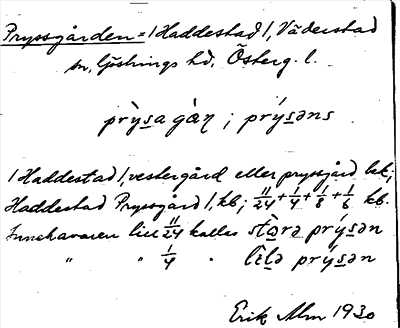 Pryssgården = 1 Haddestad 1, Väderstad
sn, Göstrings hd. Österg. l.
prỳsa gàn ; prýsəns
1 Haddestad 1, vestergård eller pryssgård bet;
Haddestad Pryssgård 1, kb; 11/24 + 1/4 + 1/8 + 1/6 kb.
Innehavaren till 11/24 kallas stòra prýsən
" " 1/4 " lìlə prýsən
Erik Alm 1930